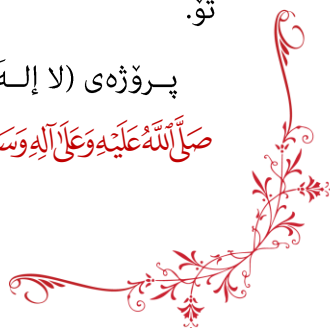 تۆ.
پـرۆژەی (لا إلـه
صَلَّى اللَّهُ عَلَيْهِ وَعَلَىٰ آلِهِ وَسَ